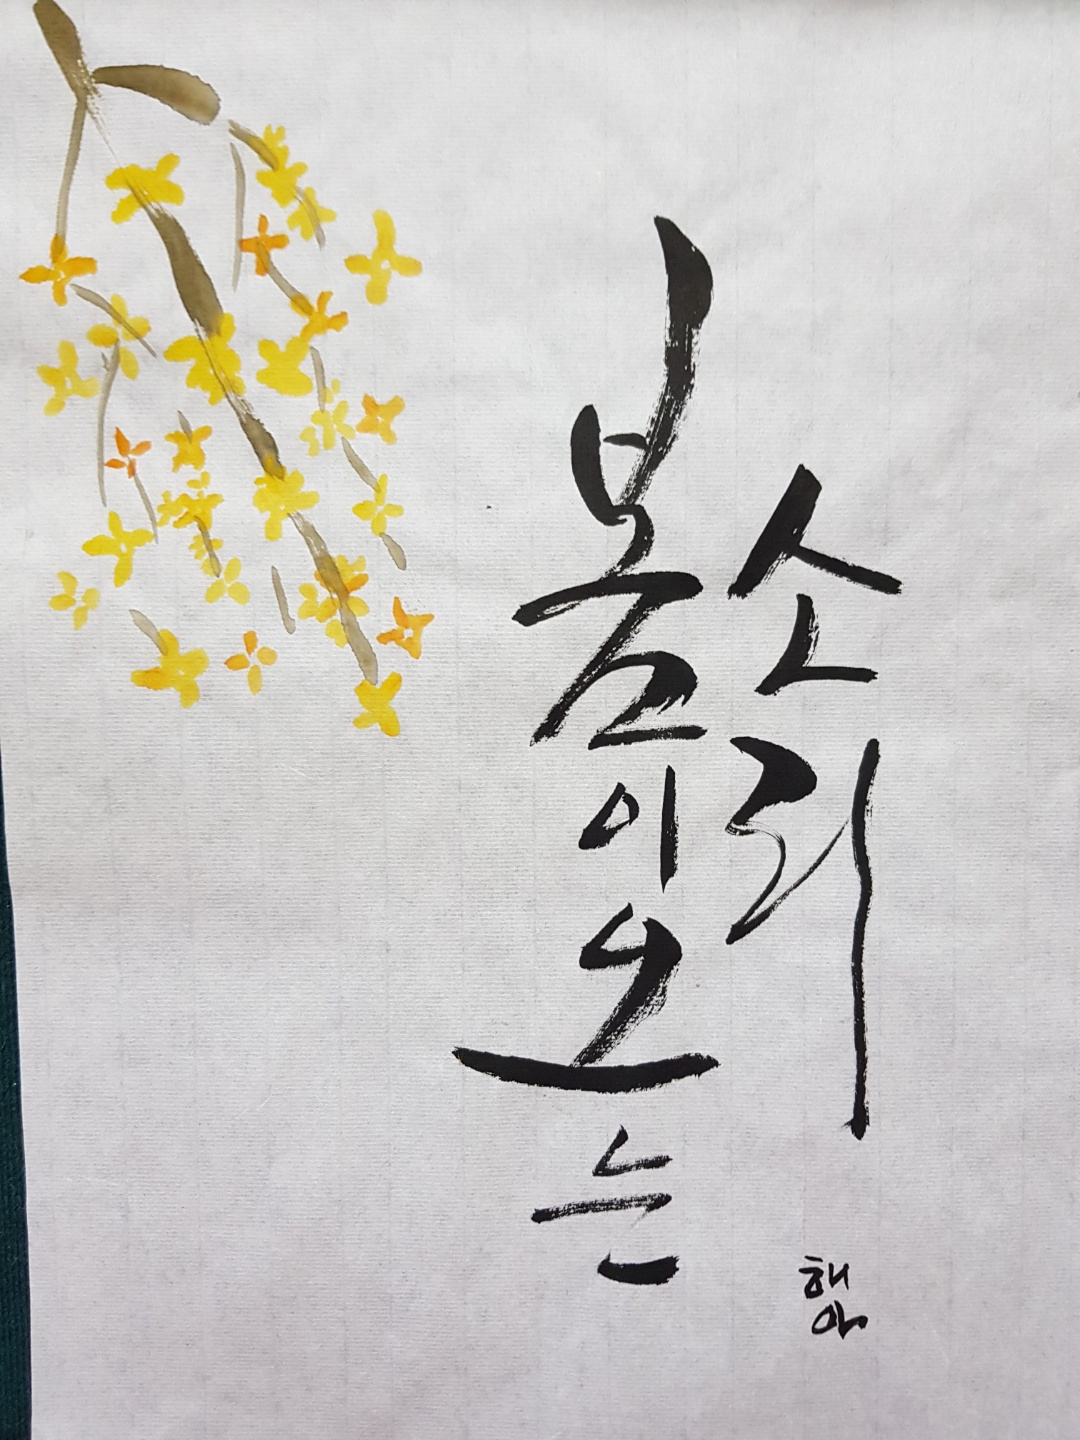 봄이오는
소리
해
아